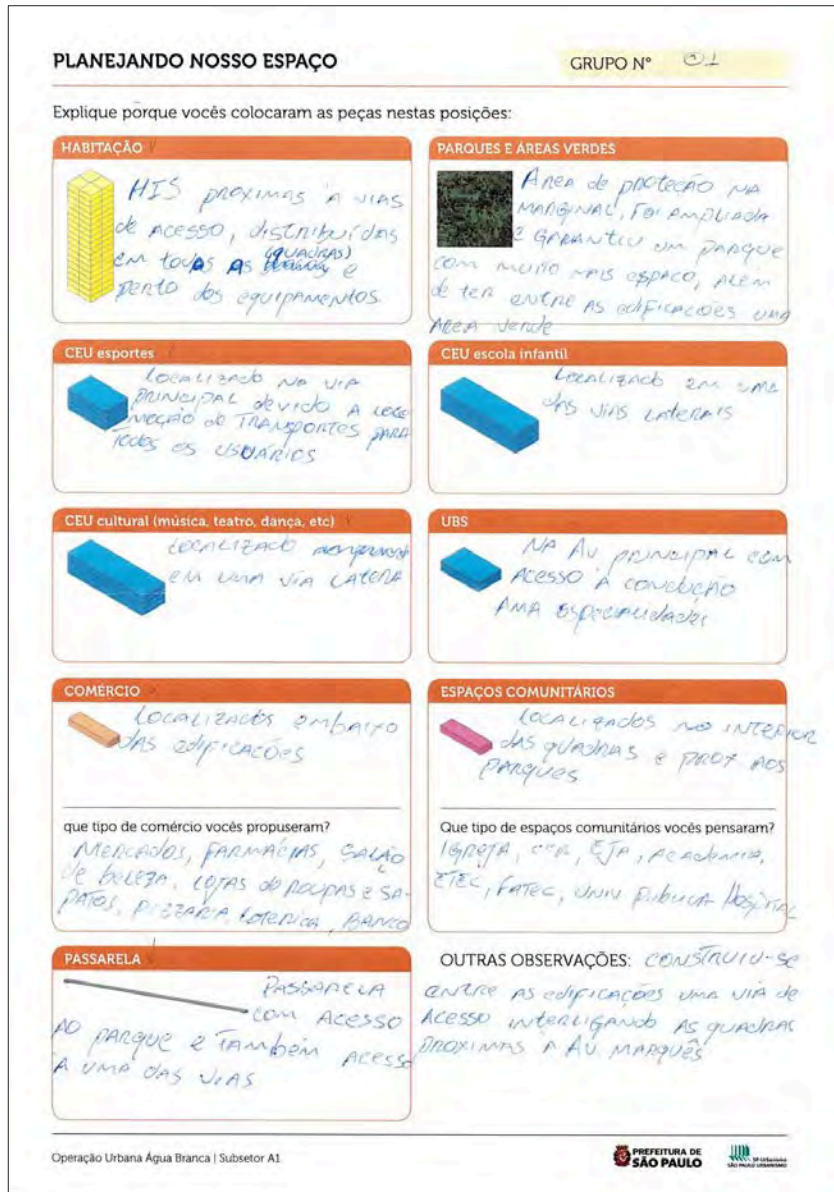 PLANEJANDO NOSSO ESPAÇO
GRUPO Nº 01
Explique porque vocês colocaram as peças nestas posições:
HABITAÇÃO
HIS proximas à vias
de acesso, distribuídas
(quadras)
em todas as e
perto dos equipamentos
PARQUES E ÁREAS VERDES
Area de proteção na
marginal, foi ampliada
e garantiu um parque
com muito mais espaço, alem
de ter entre as edificações uma
area verde
CEU esportes
Localizado na via
principal devido a loco
moção de transportes para
todos os usuários
CEU escola infantil
Localizado em uma
das vias laterais
CEU cultural (música, teatro, dança, etc)
Localizado
em uma via latera
UBS
Na Av principal com
acesso à condução
AMA especialidades
COMÉRCIO
Localizados embaixo
das edificações
que tipo de comércio vocês propuseram?
Mercados, farmácias, salão
de beleza, lojas de roupas e sa-
patos, pizzaria, loterica, banco
ESPAÇOS COMUNITÁRIOS
Localizados no interior
das quadras e prox aos
parques
Que tipo de espaços comunitários vocês pensaram?
Igreja, EJA, academia,
ETEC, FATEC, Univ publica Hospital
PASSARELA
Passarela
com acesso
ao parque e também acesso
à uma das vias
OUTRAS OBSERVAÇÕES: construiu-se
entre as edificações uma via de
acesso interligando as quadras
proximas à Av Marquês
Operação Urbana Água Branca | Subsetor A1
PREFEITURA DE
SÃO PAULO
SP-Urbanismo
SÃO PAULO URBANISMO